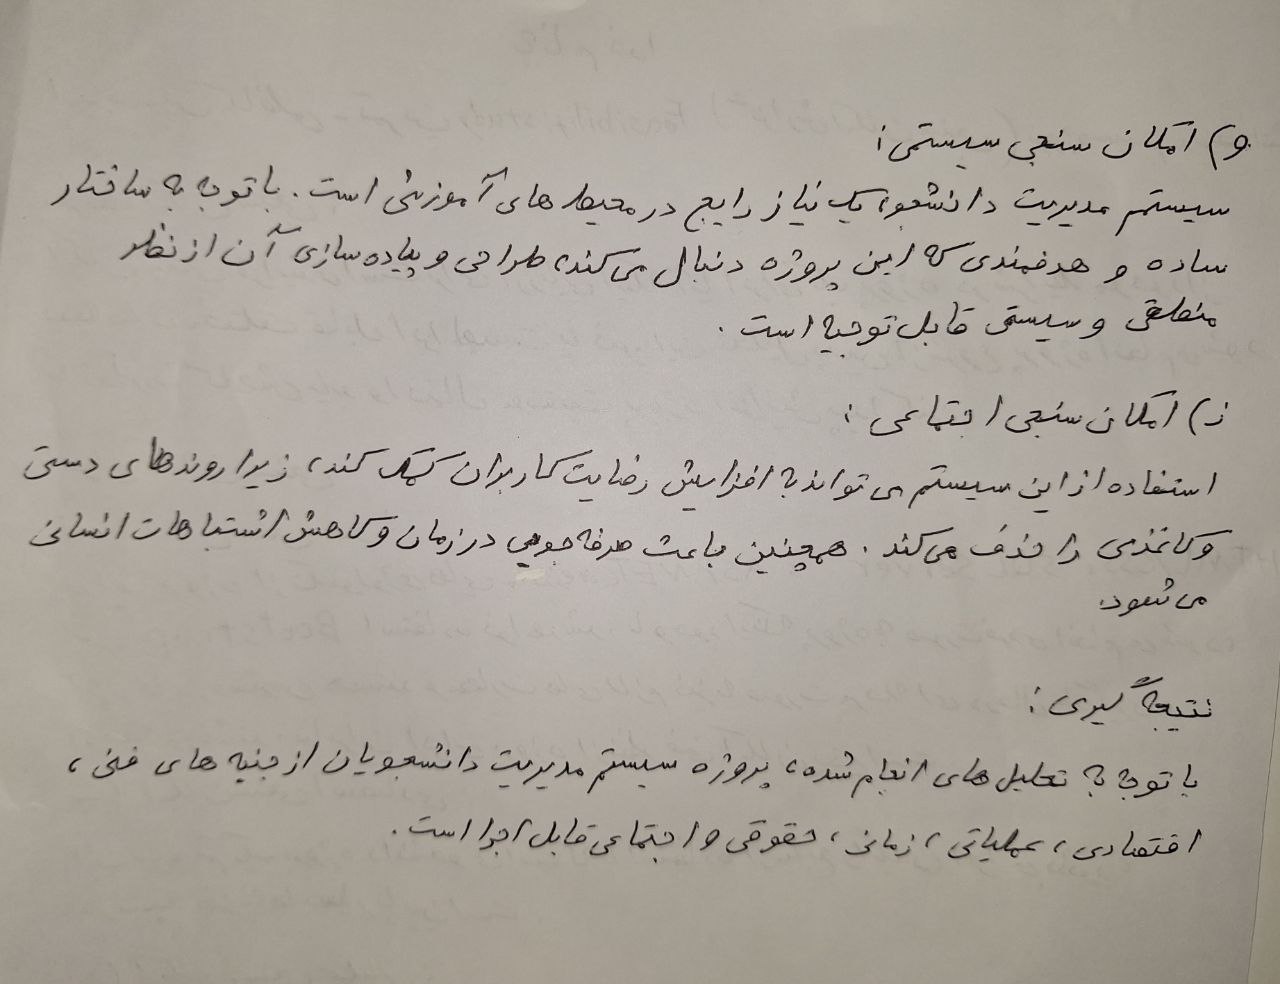 و) امکان سنجی سیستمی:
سیستم مدیریت دانشجو، یک نیاز رایج در محیط های آموزشی است. با توجه به ساختار
ساده و هدفمندی که این پروژه دنبال می کند، طراحی و پیاده سازی آن از نظر
منطقی و سیستمی قابل توجیه است.
ز) امکان سنجی اجتماعی:
استفاده از این سیستم می تواند به افزایش رضایت کاربران کمک کند، زیرا روندهای دستی
و کاغذی را حذف می کند. همچنین باعث صرفه جویی در زمان و کاهش اشتباهات انسانی
می شود.
نتیجه گیری:
با توجه به تحلیل های انجام شده، پروژه سیستم مدیریت دانشجویان از جنبه های فنی،
اقتصادی، عملیاتی، زمانی، حقوقی و اجتماعی قابل اجرا است.